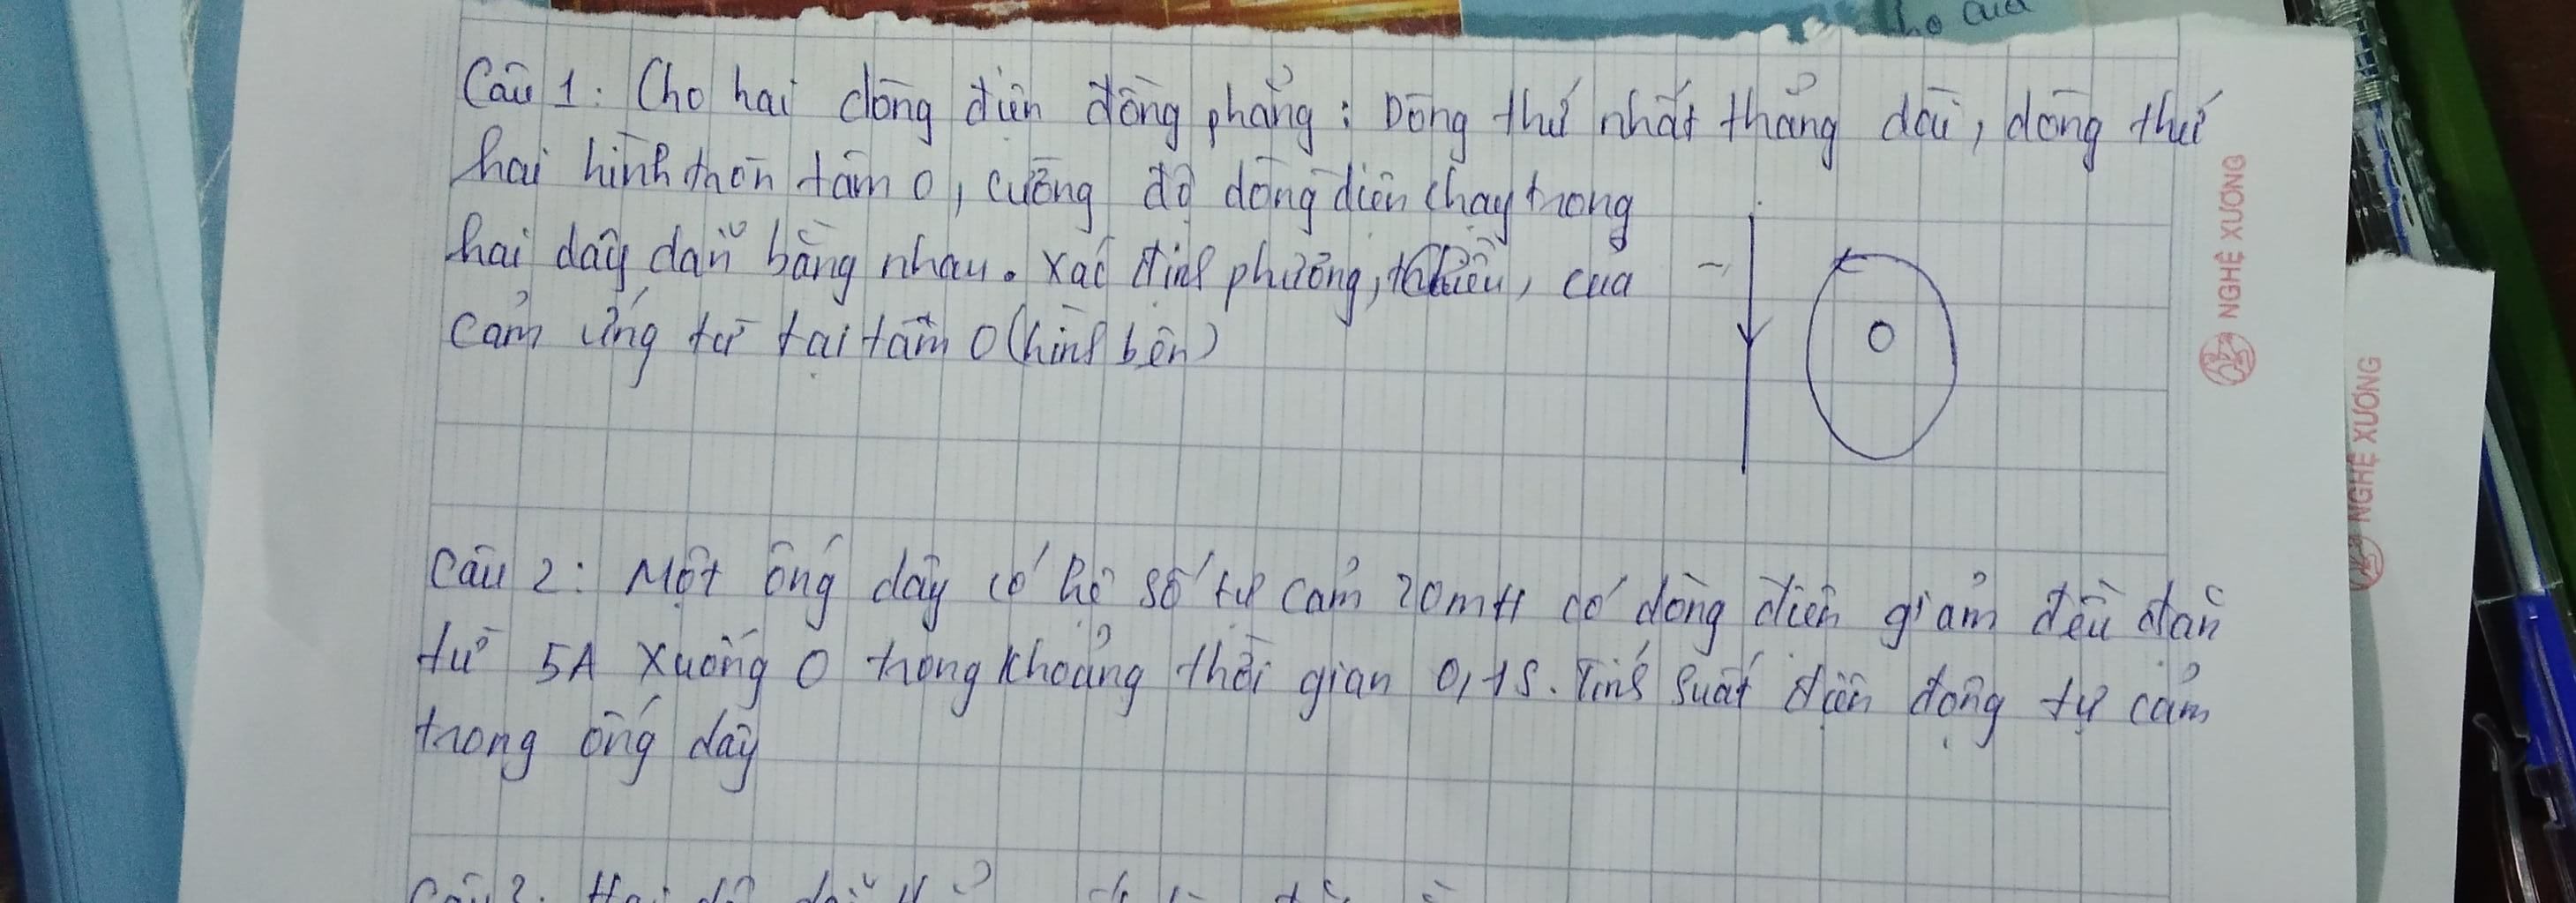 ho của
Câu 1: Cho hai dòng điện đồng phẳng: Dòng thứ nhất thẳng dài, dòng thứ
hai hình tròn tâm O, cường độ dòng điện chạy trong
hai dây dẫn bằng nhau. Xác định phương, chiều, của
cảm ứng từ tại tâm O (hình bên)
O
Câu 2: Một ống dây có hệ số tự cảm 20mH có dòng điện giảm đều đặn
từ 5A xuống 0 trong khoảng thời gian 0,1s. Tính suất điện động tự cảm
trong ống dây
NGHỆ XUONG
NGHỆ XUONG